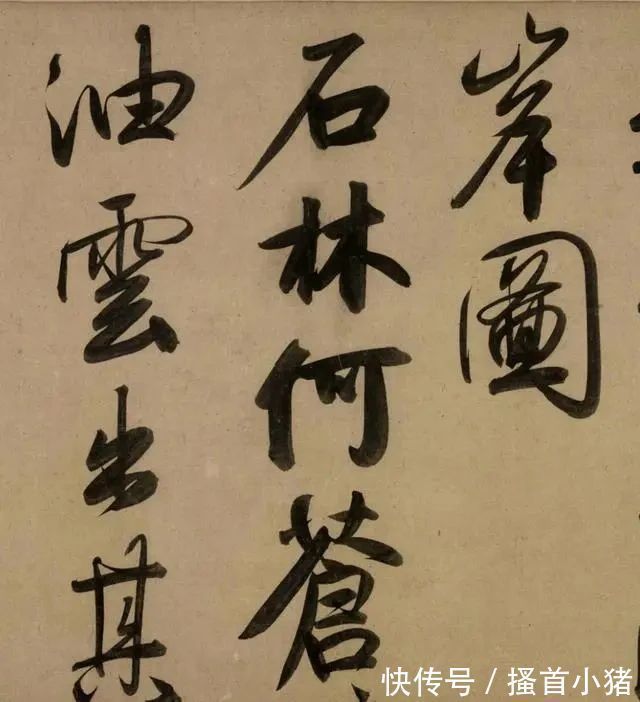 岸圖
石林何蒼
油雲出其
快传号 / 搔首小猪